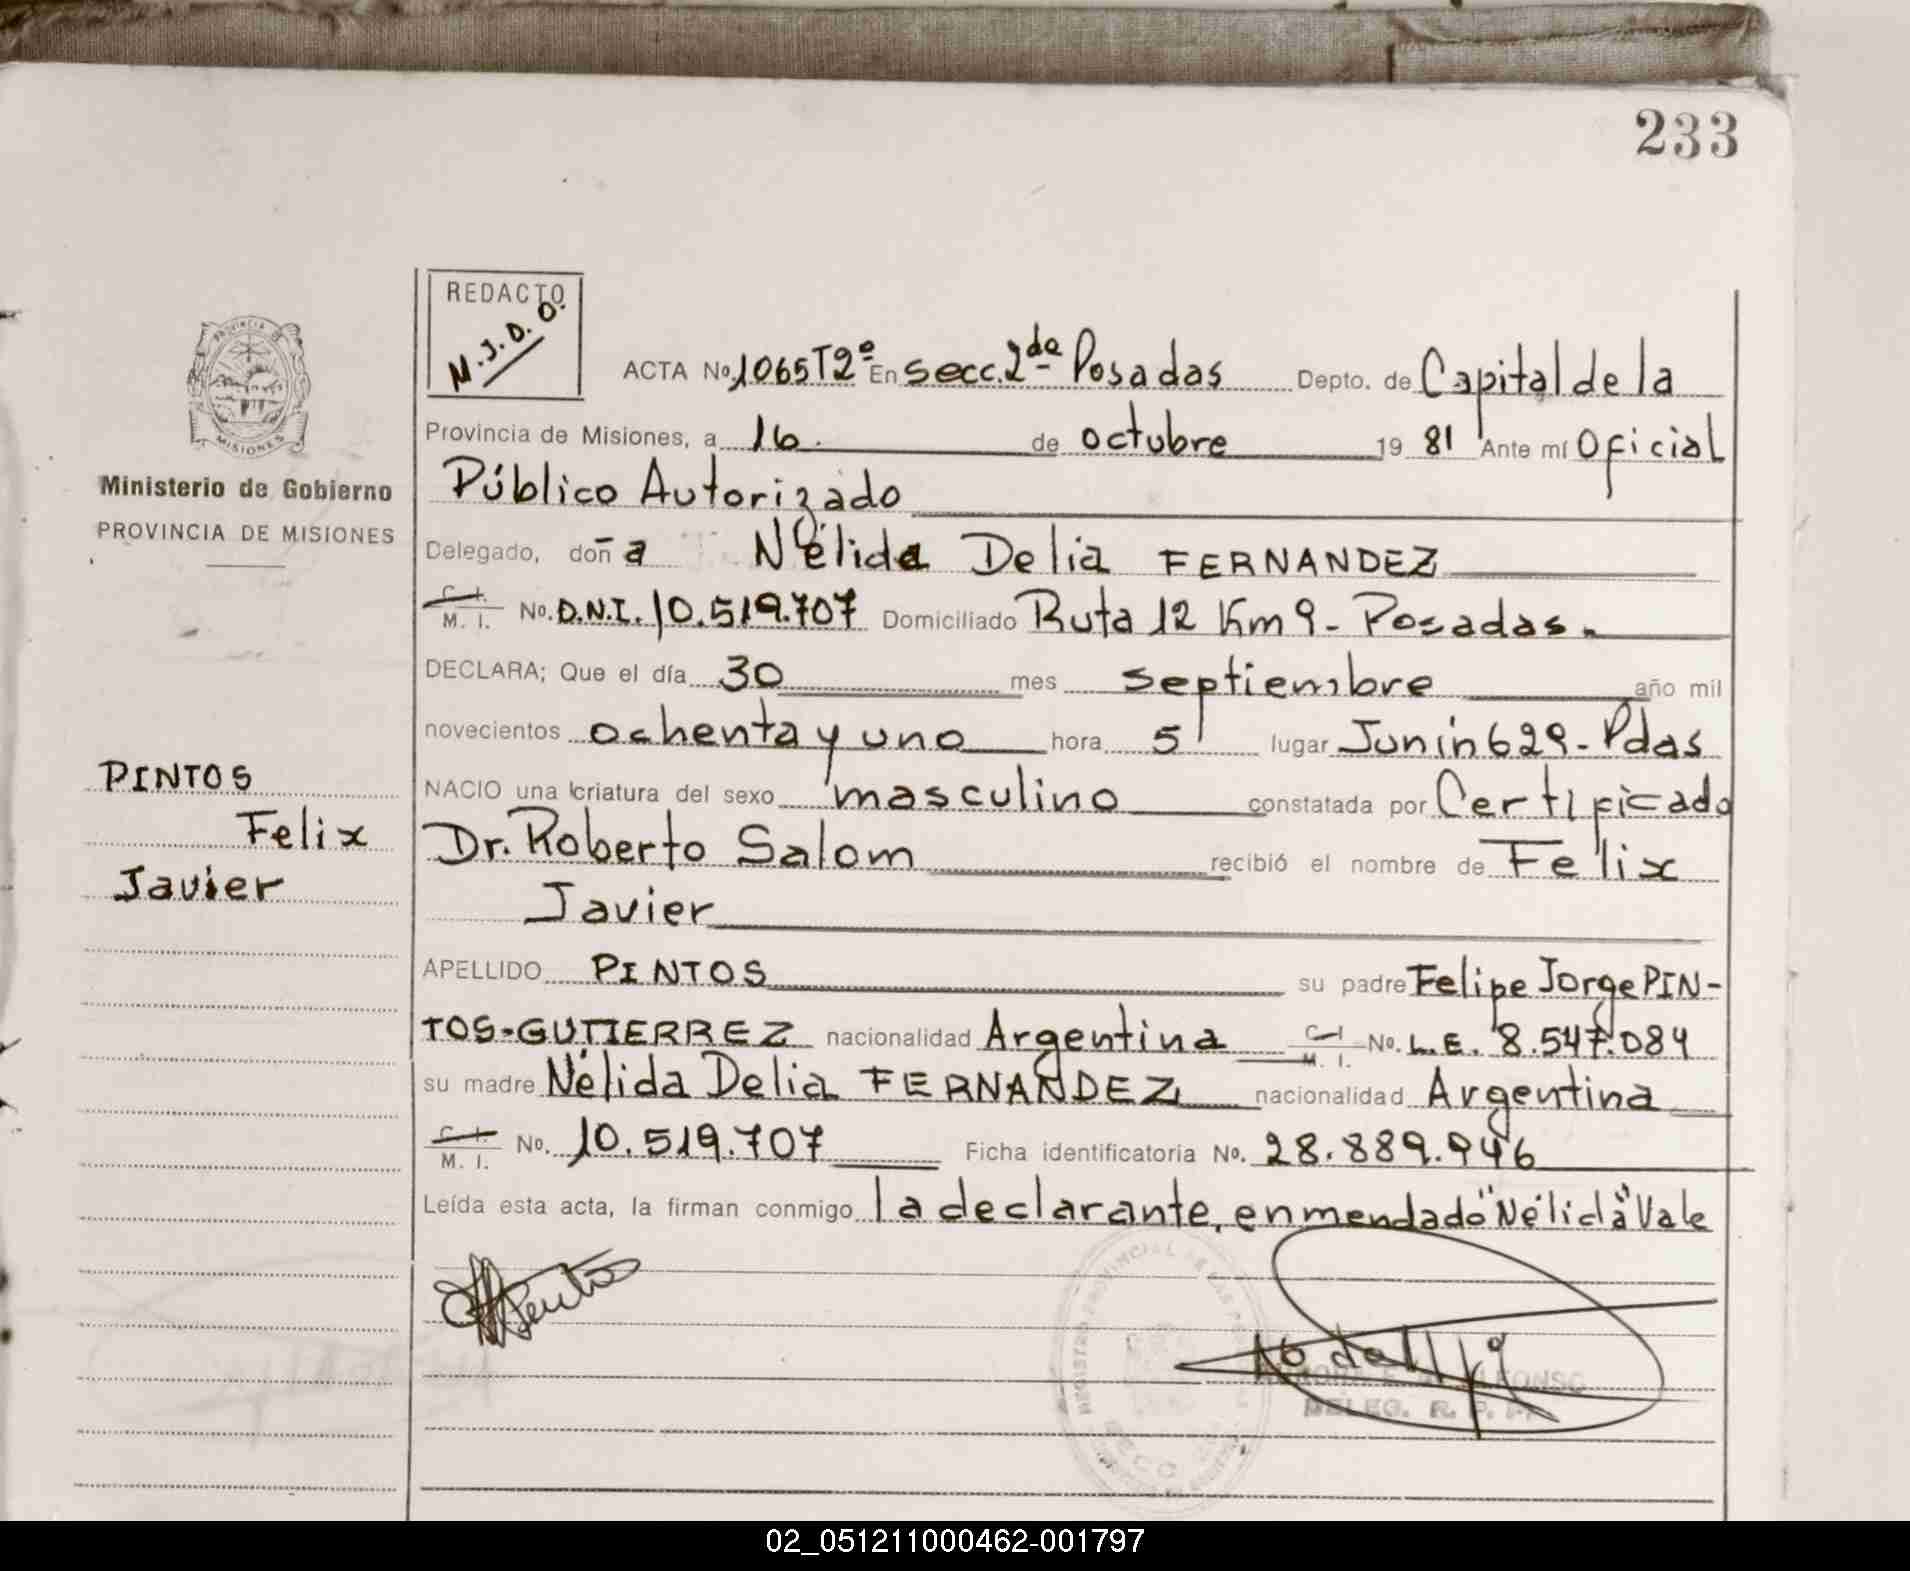 233
REDACTO
M.J.D.O.
ACTA No. 1065 T2º En Secc. 2da Posadas Depto. de Capital de la
Provincia de Misiones, a 16. de octubre 19 81 Ante mí Oficial
Público Autorizado
Delegado, doña Nélida Delia FERNANDEZ
C. I.
M. I. No. D.N.I. 10.519.707 Domiciliado Ruta 12 Km 9 - Posadas.
DECLARA; Que el día 30 mes septiembre año mil
novecientos ochenta y uno hora 5 lugar Junín 629 - Pdas
NACIO una criatura del sexo masculino constatada por Certificado
Dr. Roberto Salom recibió el nombre de Felix
Javier
APELLIDO PINTOS su padre Felipe Jorge PIN-
TOS-GUTIERREZ nacionalidad Argentina C. I. M. I. No. L.E. 8.547.084
su madre Nélida Delia FERNANDEZ nacionalidad Argentina
C. I.
M. I. No. 10.519.707 Ficha identificatoria No. 28.889.946
Leída esta acta, la firman conmigo la declarante, enmendado "Nélida" Vale
PROVINCIA DE
MISIONES
Ministerio de Gobierno
PROVINCIA DE MISIONES
PINTOS
Felix
Javier
REGISTRO PROVINCIAL DE LAS
DELEG. R. P. P.
02_051211000462-001797